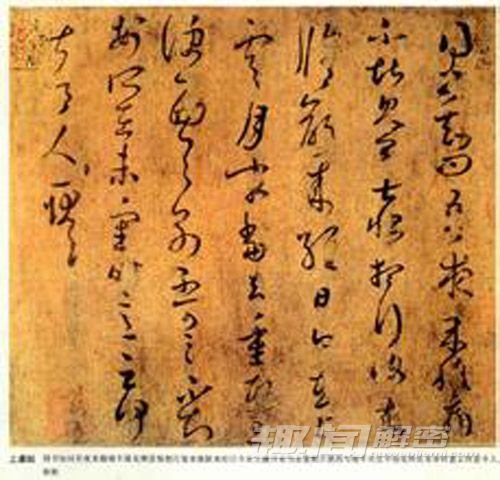 得書知問吾夜来腹痛
不堪見卿甚恨想行復来
脩齡来經日今在上
虞月末當去重熙旦
便西與別不可言不知
安所在未審時意云何
甚令人耿耿
趣闻解密
上虞帖